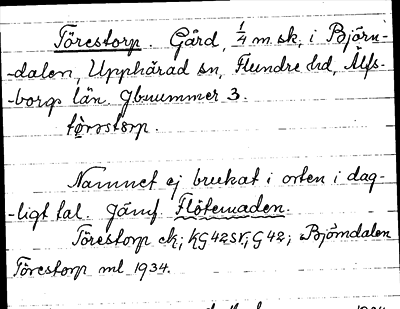 Törestorp. Gård, 1/4 m. sk, i Björn-
-dalen, Upphärad sn, Flundre hd, Älfs-
-borgs län. Gbnummer 3.
tørəstɔrp.
Namnet ej brukat i orten i dag-
-ligt tal. Jämf Flötemaden.
Törestorp ek; KG42SV; G42; Björndalen
Törestorp ml 1934.